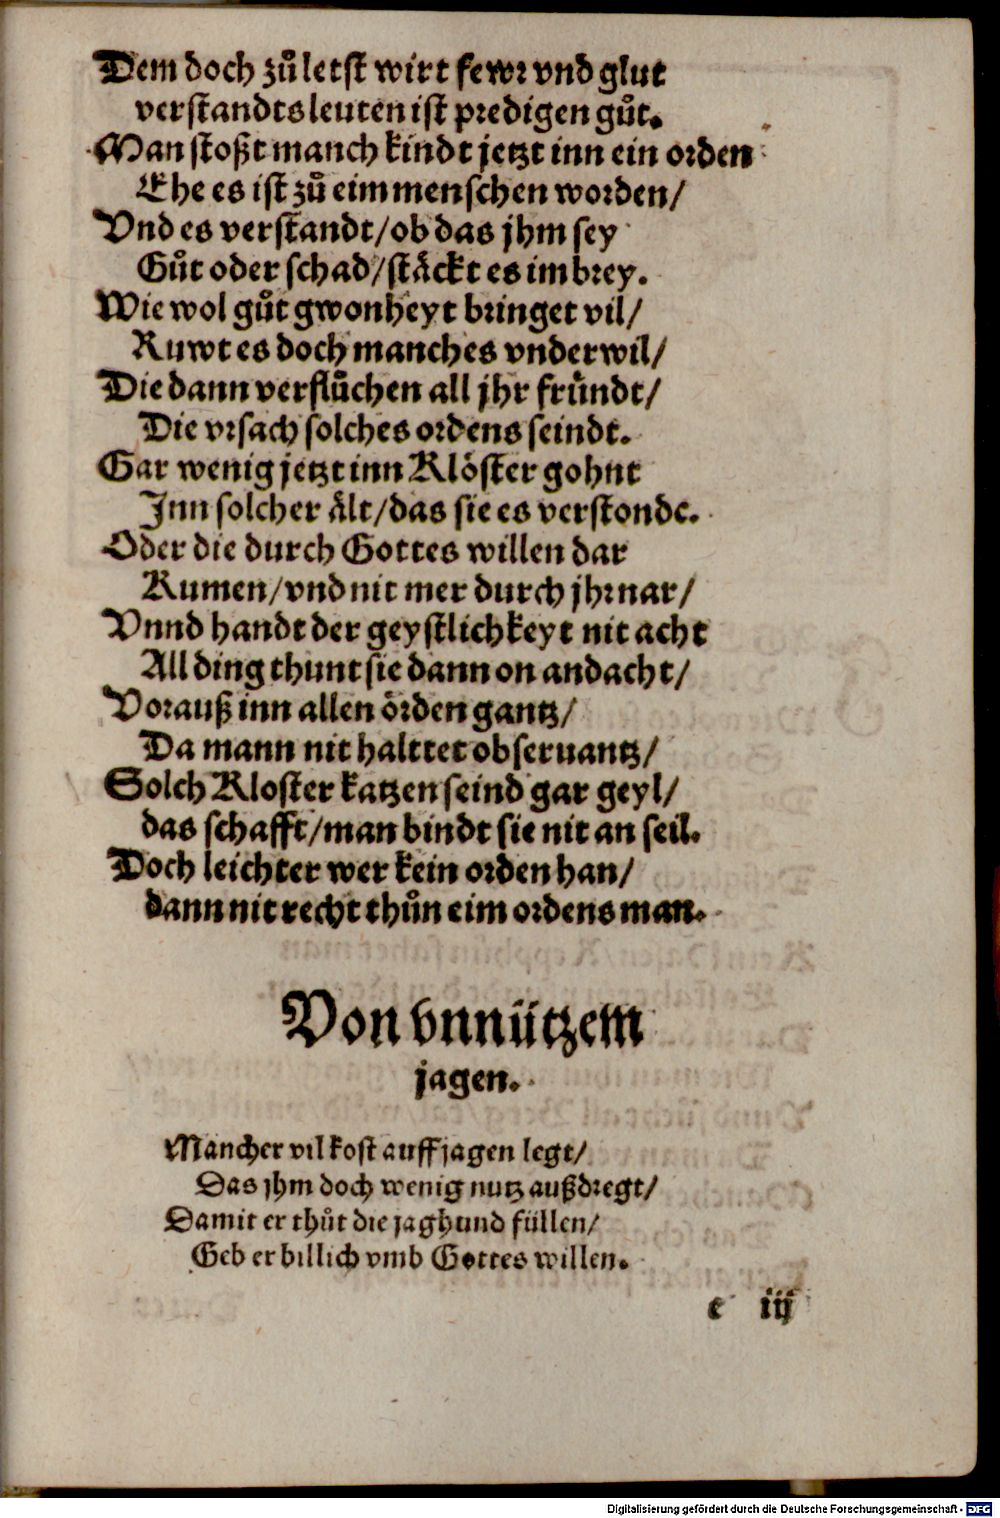 Dem doch zů letst wirt fewr vnd glut
verstandts leuten ist predigen gůt.
Man stoßt manch kindt jetzt inn ein orden
Ehe es ist zů eim menschen worden/
Vnd es verstandt/ob das jhm sey
Gůt oder schad/stäckt es im brey.
Wie wol gůt gwonheyt bringet vil/
Ruwt es doch manches vnderwil/
Die dann verflůchen all jhr fründt/
Die vrsach solches ordens seindt.
Gar wenig jetzt inn Klöster gohnt
Inn solcher ält/das sie es verstondt.
Oder die durch Gottes willen dar
Kumen/vnd nit mer durch jhr nar/
Vnnd handt der geystlichkeyt nit acht
All ding thunt sie dann on andacht/
Vorauß inn allen örden gantz/
Da mann nit halttet obseruantz/
Solch Kloster katzen seind gar geyl/
das schafft/man bindt sie nit an seil.
Doch leichter wer kein orden han/
dann nit recht thůn eim ordens man.
Von vnnützem
jagen.
Mancher vil kost auff jagen legt/
Das jhm doch wenig nutz außdregt/
Damit er thůt die jaghund füllen/
Geb er billich vmb Gottes willen.
e iij
Digitalisierung gefördert durch die Deutsche Forschungsgemeinschaft - DFG